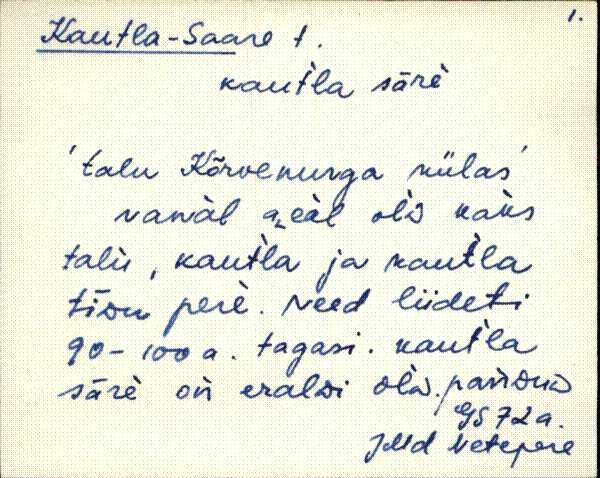 1.
Kautla-Saare t.
kautla särè
'talu Kõrvenurga külas'
vanàl aeàl olì kaks
talù, kautla ja kautla
perè. Need liideti
90-100 a. tagasi. kautla
särè on eraldi olà.
72 a.
Vetepere